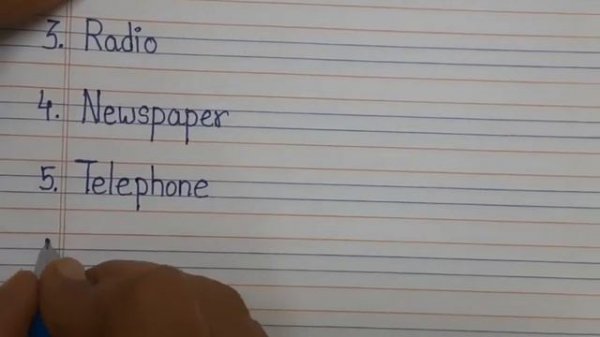 3. Radio
4. Newspaper
5. Telephone